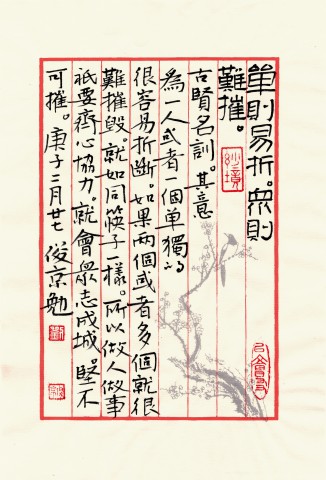 单則易折。眾則
難摧。
古賢名訓。其意
為一人或者一個单獨的
很容易折斷。如果两個或者多個就很
難摧毀。就如同筷子一樣。所以做人做事
祗要齊心協力。就會眾志成城。堅不
可摧。庚子二月廿七 俊京勉
妙境